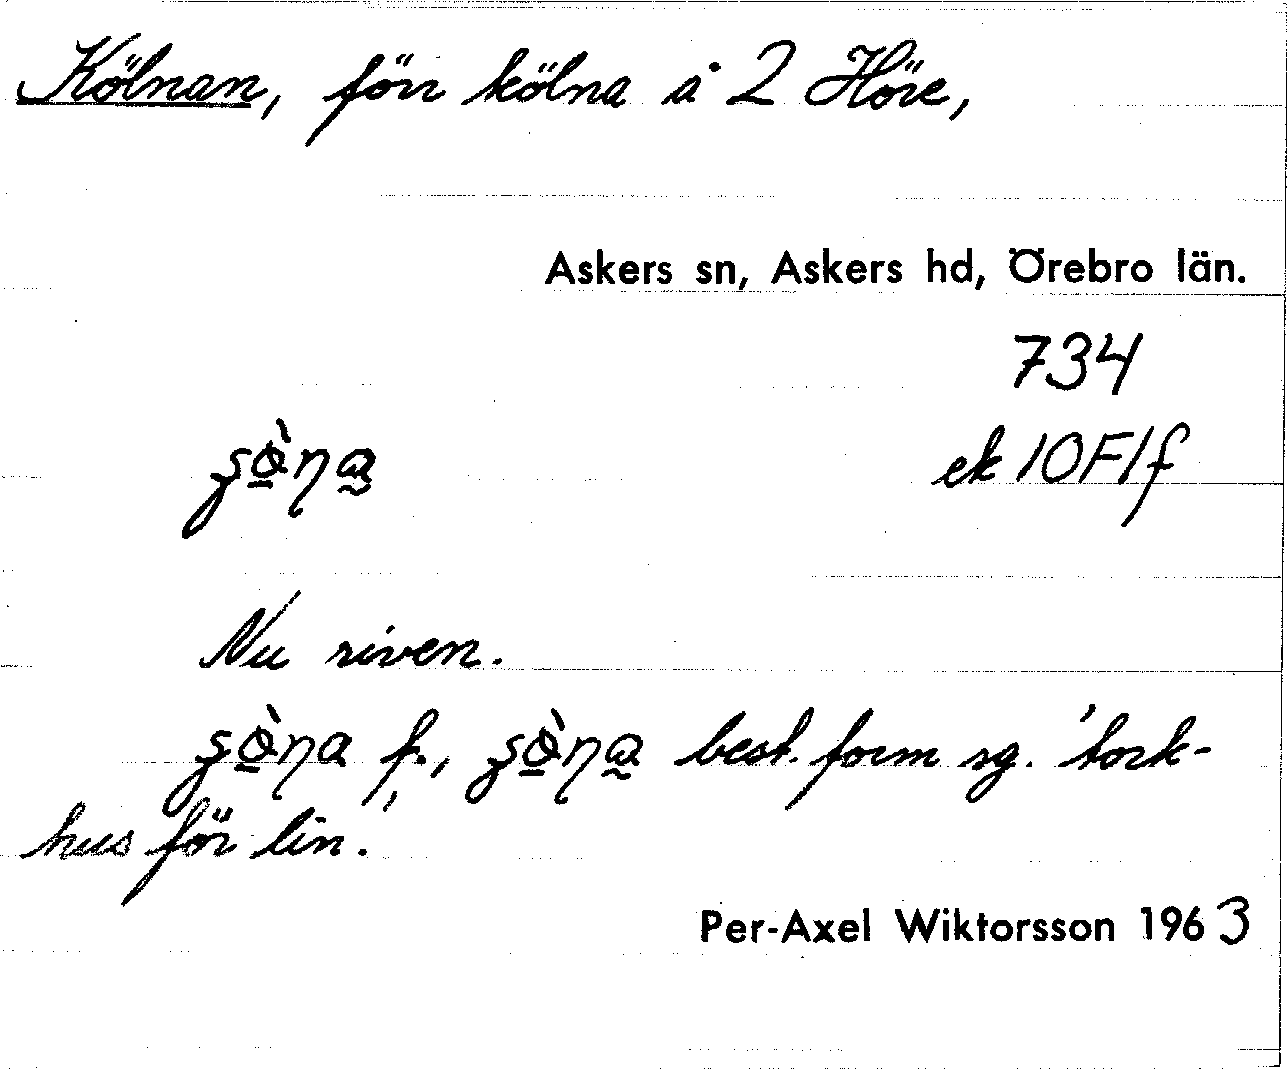 Kölnan, förr kölna å 2 Höre,
Askers sn, Askers hd, Örebro län.
734
ek 10F1f
Nu riven.
f., best. form sg. 'tork-
hus för lin.'
Per-Axel Wiktorsson 1963